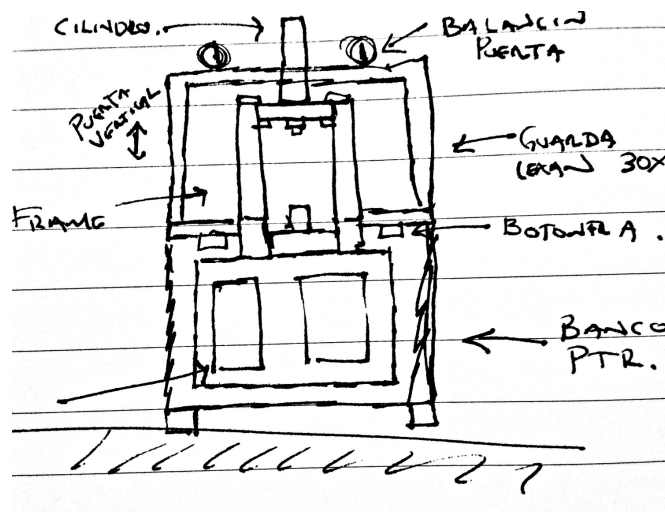 CILINDRO.
BALANCIN
PUERTA
PUERTA
VERTICAL
GUARDA
LEXAN 30X
FRAME
BOTONERA.
BANCO
PTR.